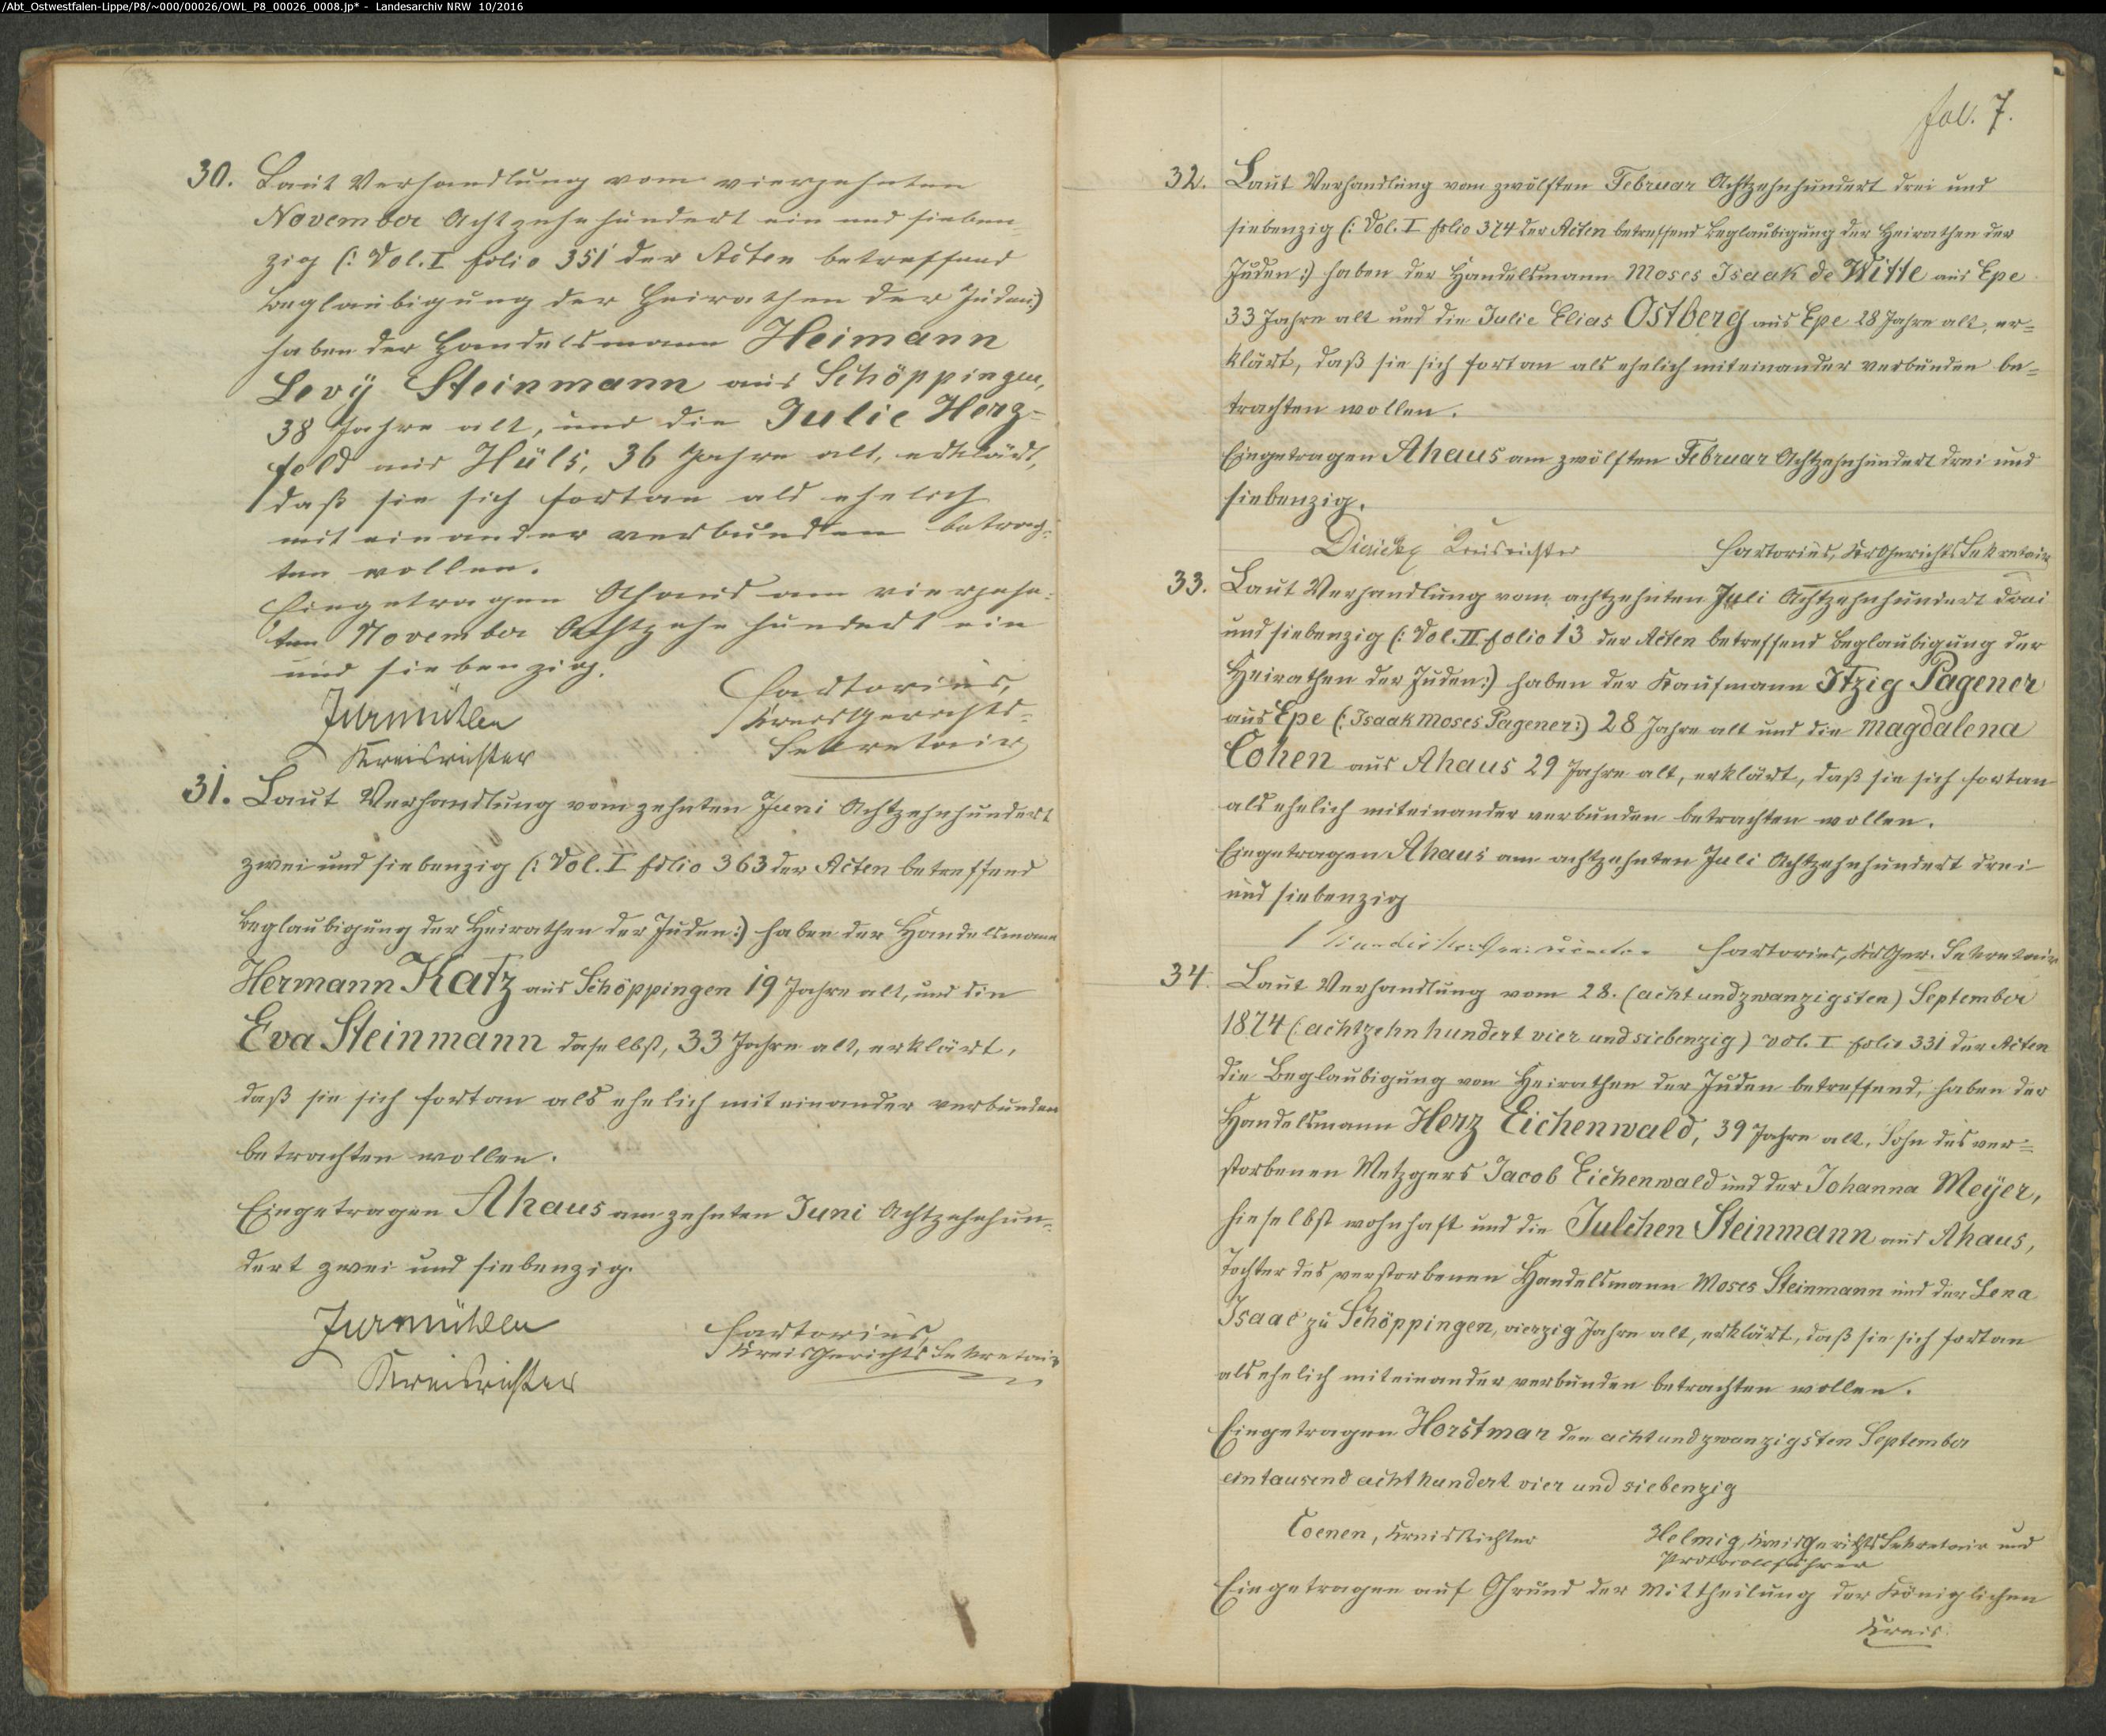 /Abt_Ostwestfalen-Lippe/P8/~000/00026/OWL_P8_00026_0008.jp* - Landesarchiv NRW 10/2016
30. Laut Verhandlung vom vierzehnten
November Achtzehnhundert ein und sieben-
zig (: Vol. I folio 351 der Acten betreffend
Beglaubigung der Heirathen der Juden:)
haben der Handelsmann Heimann
Levÿ Steinmann aus Schöppingen,
38 Jahre alt, und die Julie Herz-
feld aus Hüls, 36 Jahre alt, erklärt,
daß sie sich fortan als ehelich
mit einander verbunden betrach-
ten wollen.
Eingetragen Ahaus am vierzehn-
ten November Achtzehnhundert ein
und siebenzig.
Zurmühlen
Kreisrichter
Sartorius,
Kreisgerichts-
Sekretair
31. Laut Verhandlung vom zehnten Juni Achtzehnhundert
zwei und siebenzig (: Vol. I folio 363 der Acten betreffend
Beglaubigung der Heirathen der Juden:) haben der Handelsmann
Hermann Katz aus Schöppingen 19 Jahre alt, und die
Eva Steinmann daselbst, 33 Jahre alt, erklärt,
daß sie sich fortan als ehelich mit einander verbunden
betrachten wollen.
Eingetragen Ahaus am zehnten Juni Achtzehnhun-
dert zwei und siebenzig.
Zurmühlen
Kreisrichter
Sartorius,
Kreisgerichts Sekretair
fol. 7.
32. Laut Verhandlung vom zwölften Februar Achtzehnhundert drei und
siebenzig (: Vol. I folio 374 der Acten betreffend Beglaubigung der Heirathen der
Juden:) haben der Handelsmann Moses Isaak de Witte aus Epe
33 Jahre alt und die Julie Elias Ostberg aus Epe 28 Jahre alt, er=
klärt, daß sie sich fortan als ehelich miteinander verbunden be=
trachten wollen.
Eingetragen Ahaus am zwölften Februar Achtzehnhundert drei und
siebenzig.
Kreisrichter
Sartorius, KrGerichtsSekretair
33. Laut Verhandlung vom achtzehnten Juli Achtzehnhundert drei
und siebenzig (: Vol. II folio 13 der Acten betreffend Beglaubigung der
Heirathen der Juden:) haben der Kaufmann Itzig Pagener
aus Epe (: Isaak Moses Pagener:) 28 Jahre alt und die Magdalena
Cohen aus Ahaus 29 Jahre alt, erklärt, daß sie sich fortan
als ehelich miteinander verbunden betrachten wollen.
Eingetragen Ahaus am achtzehnten Juli Achtzehnhundert drei
und siebenzig
Sartorius, KrsGer. Sekretair
34. Laut Verhandlung vom 28. (acht und zwanzigsten) September
1874 (: achtzehnhundert vier und siebenzig) vol. I folio 331 der Acten
die Beglaubigung von Heirathen der Juden betreffend, haben der
Handelsmann Herz Eichenwald, 39 Jahre alt, Sohn des ver=
storbenen Metzgers Jacob Eichenwald und der Johanna Meÿer,
hieselbst wohnhaft und die Julchen Steinmann aus Ahaus,
Tochter des verstorbenen Handelsmann Moses Steinmann und der Lena
Isaac zu Schöppingen, vierzig Jahre alt, erklärt, daß sie sich fortan
als ehelich miteinander verbunden betrachten wollen.
Eingetragen Horstmar den acht und zwanzigsten September
eintausend achthundert vier und siebenzig
Coenen, KreisRichter
Helmig, Kreisgerichts Sekretair und
Protocollführer
Eingetragen auf Grund der Mittheilung der Königlichen
Kreis-